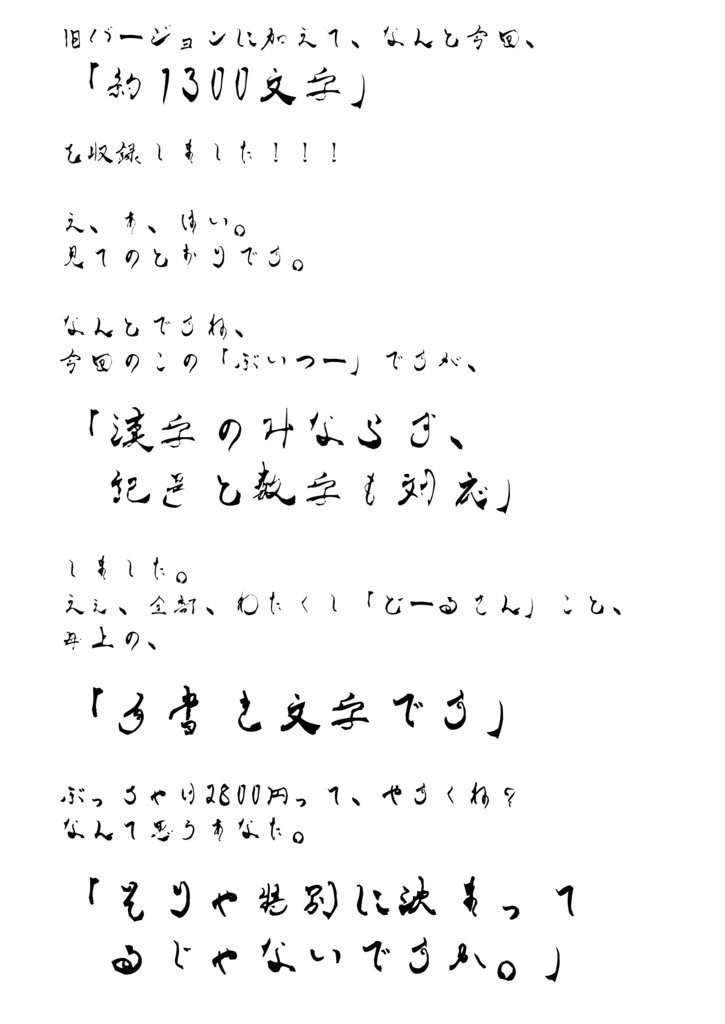 旧バージョンに加えて、なんと今回、
「約1300文字」
を収録しました！！！
え、あ、はい。
見てのとおりです。
なんとですね、
今回のこの「ぶいつー」ですが、
「漢字のみならず、
記号と数字も対応」
しました。
ええ、全部、わたくし「どーるさん」こと、
母上の、
「手書き文字です」
ぶっちゃけ2800円って、やすくね？
なんて思うあなた。
「そりゃ特別に決まって
るじゃないですか。」